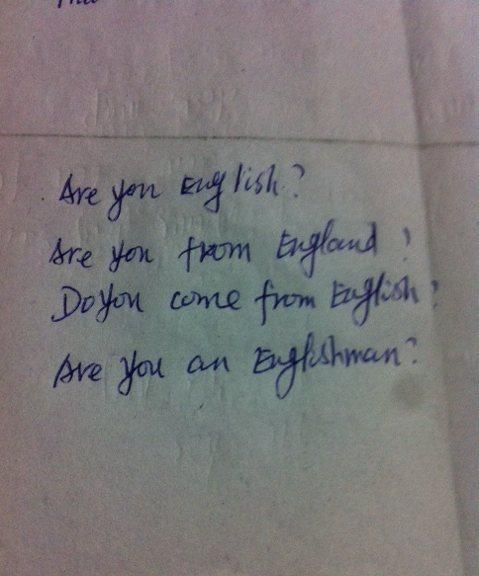 Are you English?
Are you from England?
Do you come from English?
Are you an Englishman?